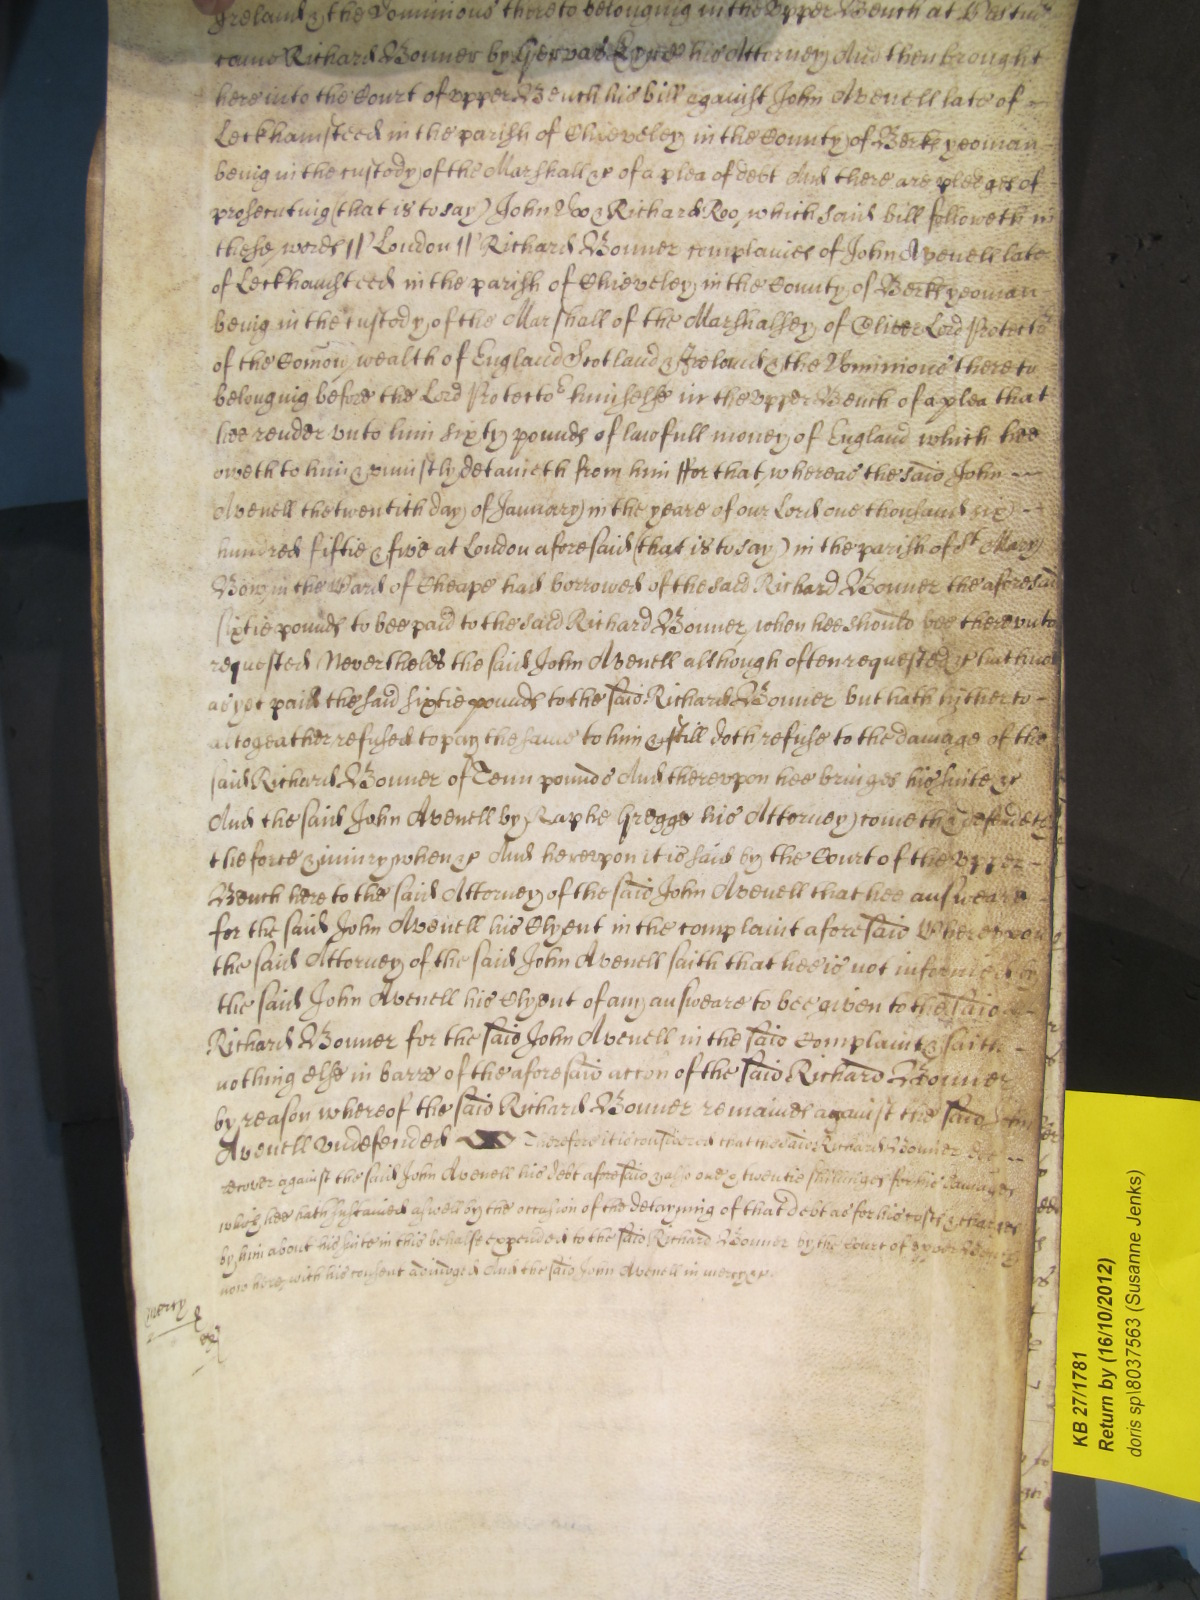 Ireland & the Dominions thereto belonging in the Upper Bench at
came Richard Bonner by his Attorney And then brought
here into the Court of upper Bench his bill against John Avenell late of
Leckhamsteed in the parish of Chieveley in the County of Berks yeoman
being in the custody of the Marshall &c of a plea of debt And there are pledges of
prosecuting (that is to say) John Doo & Richard Roo, which said bill followeth in
these words // London // Richard Bonner complaines of John Avenell late
of Leckhamsteed in the parish of Chieveley in the County of Berks yeoman
being in the custody of the Marshall of the Marshalsey of Oliver Lord Protector
of the Comon wealth of England Scotland & Ireland & the Dominions thereto
belonging before the Lord Protector himselfe in the upper Bench of a plea that
hee render vnto him sixty pounds of lawfull money of England which hee
oweth to him & vniustly detaineth from him ffor that, whereas the said John
Avenell the twentith day of January in the yeare of our Lord one thousand six
hundred fiftie & five at London aforesaid (that is to say) in the parish of St Mary
Bow in the Ward of Cheape had borrowed of the said Richard Bonner the aforesaid
sixtie pounds to bee paid to the said Richard Bonner, when hee should bee therevnto
requested Neverthelesse the said John Avenell although often requested &c hath not
as yet paid the said sixtie pounds to the said Richard Bonner but hath hitherto
altogeather refused to pay the same to him & still doth refuse to the damage of the
said Richard Bonner of Tenn pounds And therevpon hee bringes his suite &c
And the said John Avenell by Raphe Gregge his Attorney cometh & defendeth
the force & iniury when &c And herevpon it is said by the Court of the vpper
Bench here to the said Attorney of the said John Avenell that hee answeare
for the said John Avenell his Clyent in the complaint aforesaid Wherevpon
the said Attorney of the said John Avenell saith that hee is not informed by
the said John Avenell his Clyent of any answeare to bee given to the said
Richard Bonner for the said John Avenell in the said Complaint & saith
nothing else in barre of the aforesaid accon of the said Richard Bonner
by reason whereof the said Richard Bonner remaines against the said John
Avenell vndefended Therefore it is considered that the said Richard Bonner doe
recover against the said John Avenell his debt aforesaid & also one & twentie shillinges for his damages
which hee hath sustained aswell by the occasion of the detayning of that debt as for his costs & charges
by him about his suite in this behalfe expended to the said Richard Bonner by the Court of vpper Bench
now here with his consent adiudged And the said John Avenell in mercy &c
mercy
KB 27/1781
Return by (16/10/2012)
doris sp\8037563 (Susanne Jenks)